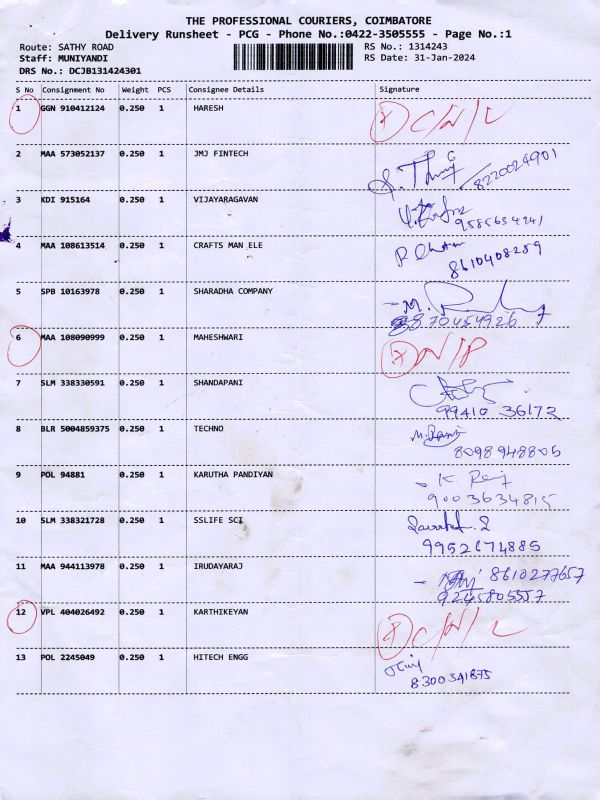 THE PROFESSIONAL COURIERS, COIMBATORE
Delivery Runsheet - PCG - Phone No.:0422-3505555 - Page No.:1
Route: SATHY ROAD RS No.: 1314243
Staff: MUNIYANDI RS Date: 31-Jan-2024
DRS No.: DCJB131424301
S No Consignment No Weight PCS Consignee Details Signature
1 GGN 910412124 0.250 1 HARESH
2 MAA 573052137 0.250 1 JMJ FINTECH
8220024901
3 KDI 915164 0.250 1 VIJAYARAGAVAN
9585634241
4 MAA 108613514 0.250 1 CRAFTS MAN ELE
8610408259
5 SPB 10163978 0.250 1 SHARADHA COMPANY
6 MAA 108090999 0.250 1 MAHESHWARI
7 SLM 338330591 0.250 1 SHANDAPANI
99410 36172
8 BLR 5004859375 0.250 1 TECHNO
8098948805
9 POL 94881 0.250 1 KARUTHA PANDIYAN
9003634815
10 SLM 338321728 0.250 1 SSLIFE SCI
9952674885
11 MAA 944113978 0.250 1 IRUDAYARAJ
8610277657
9245805557
12 VPL 404026492 0.250 1 KARTHIKEYAN
13 POL 2245049 0.250 1 HITECH ENGG
8300341875